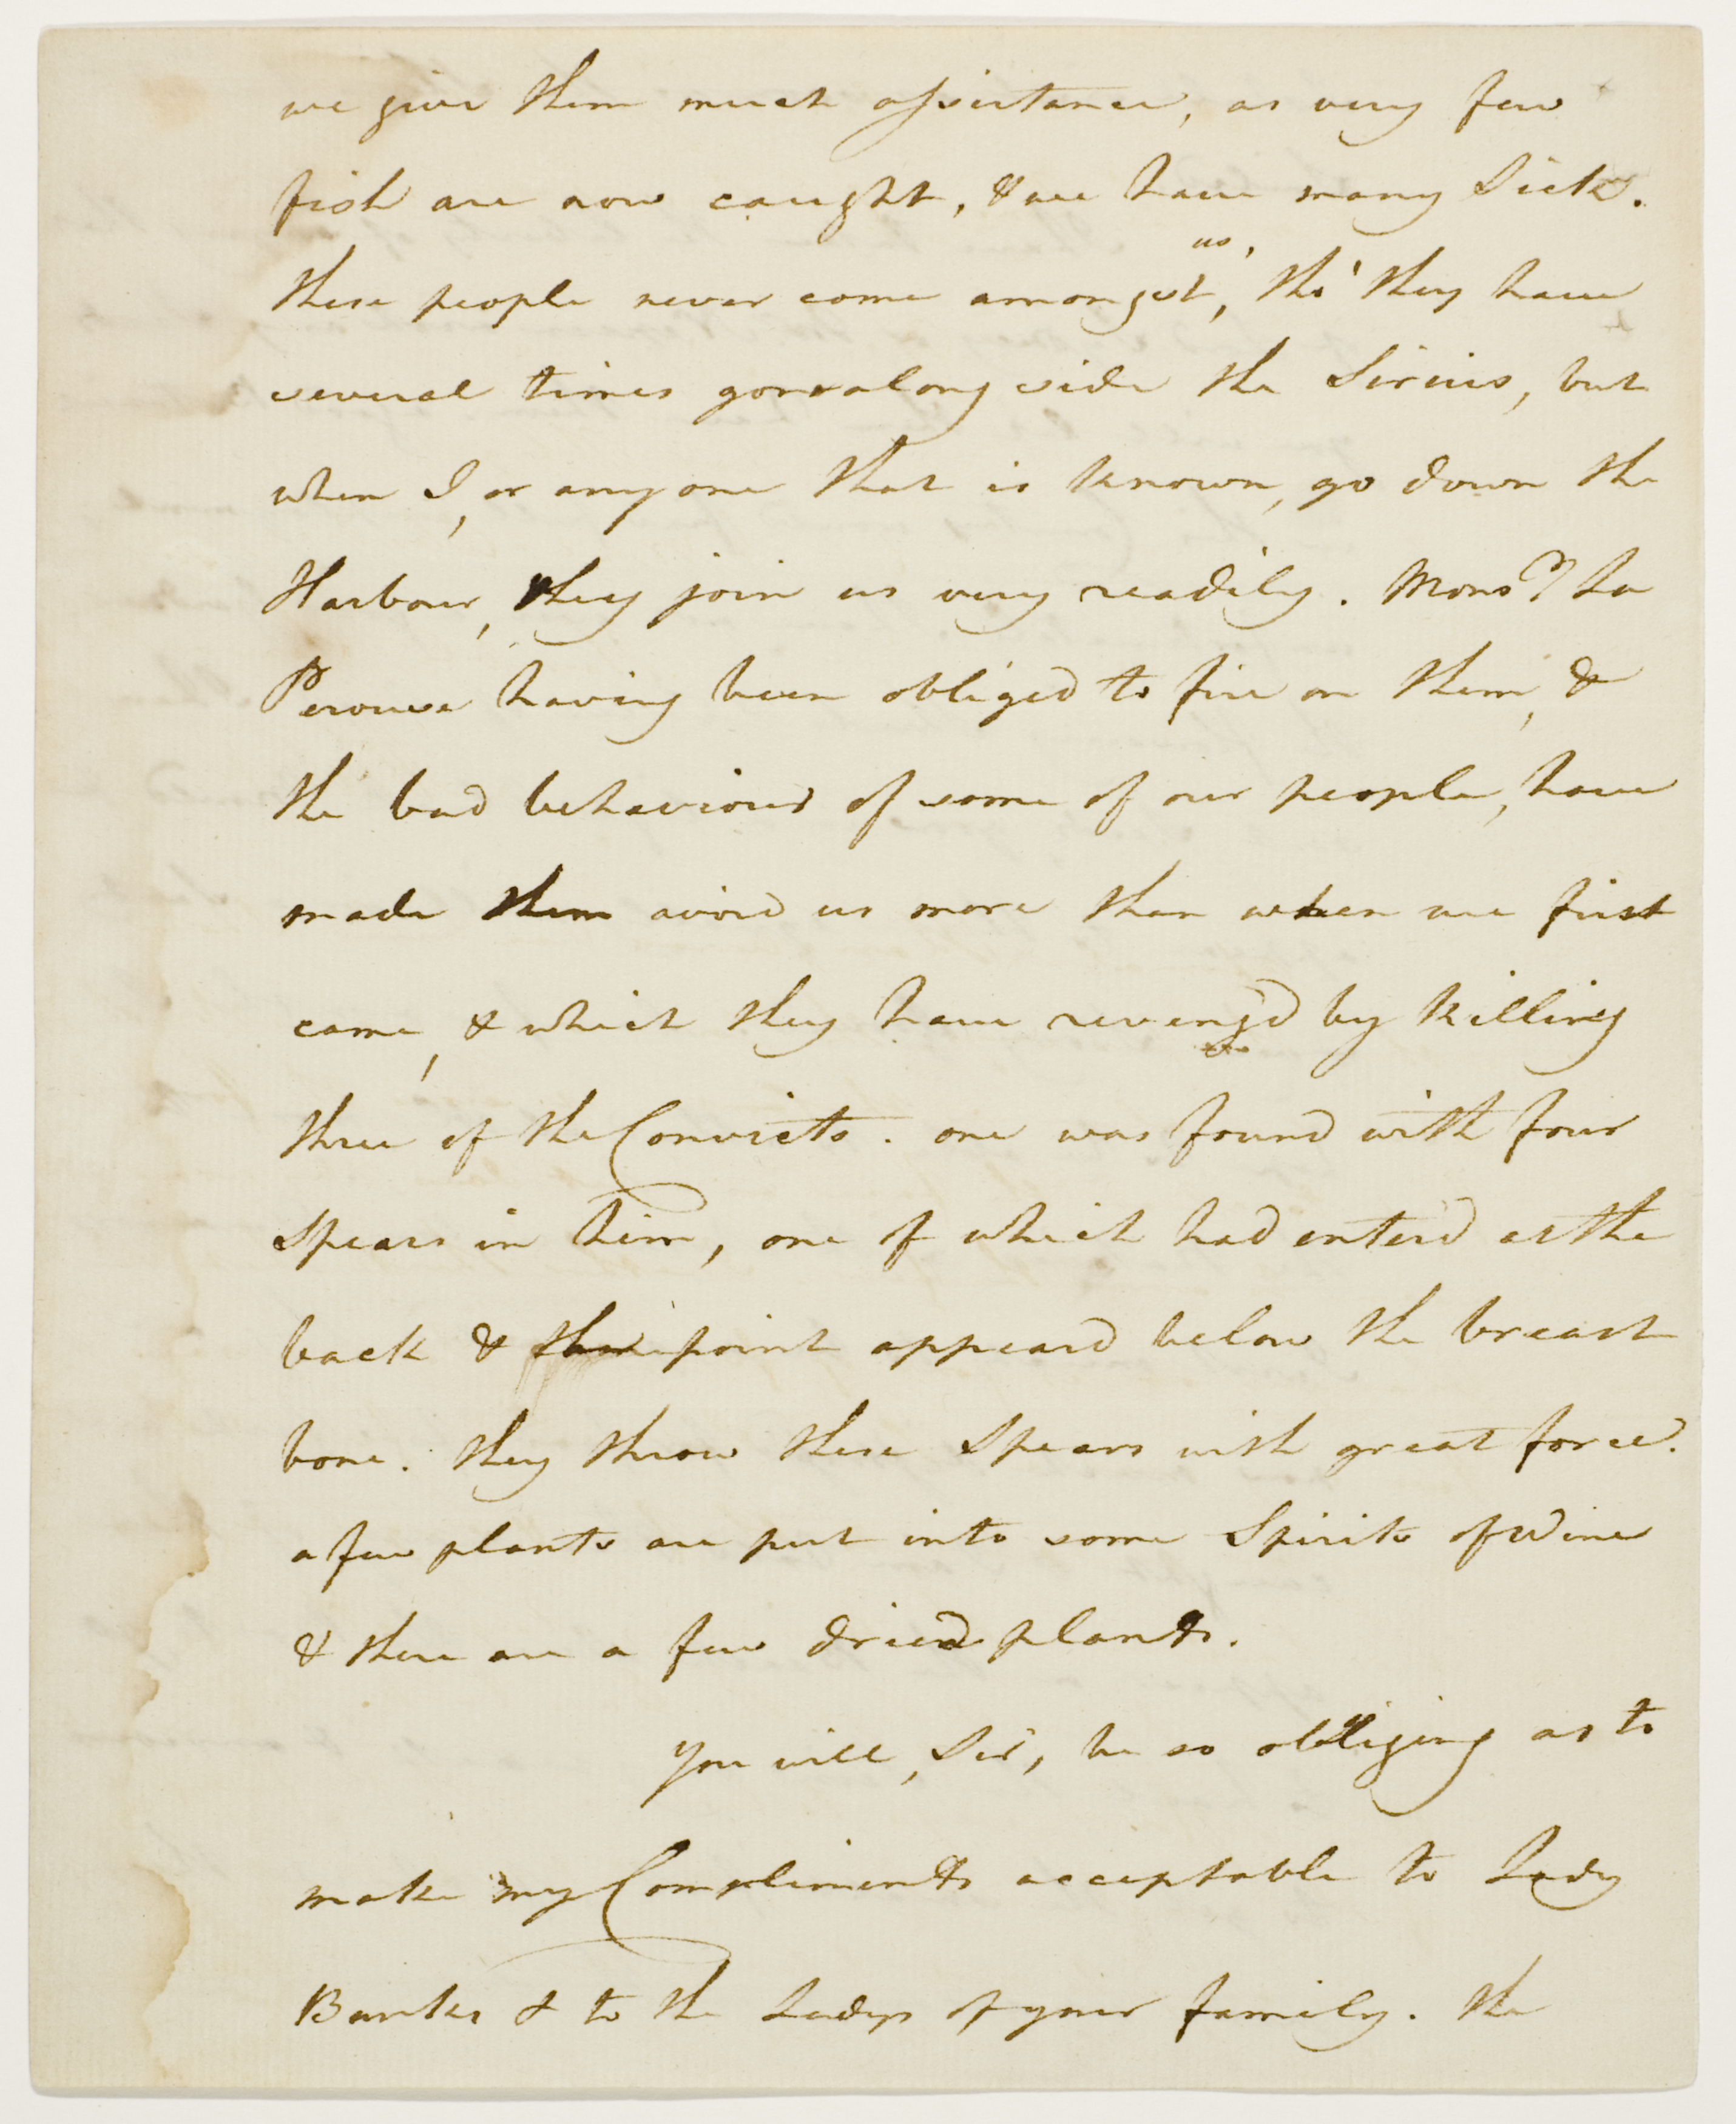 we give them much assistance, as very few
fish are now caught, & we have many Sick.
these people never come amongst us, tho' they have
several times gone along side the Sirius, but
when I, or any one that is known, go down the
Harbour, they join us very readily. Monsr. La
Perouse having been obliged to fire on them, &
the bad behaviour of some of our people, have
made them avoid us more than when we first
came, & which they have reveng'd by killing
three of the Convicts. one was found with four
Spears in him, one of which had enter'd at the
back & the point appear'd below the breast
bone. they throw these Spears with great force.
a few plants are put into some Spirits of Wine
& there are a few dried plants.
You will, Sir, be so obliging as to
make my Compliments acceptable to Lady
Banks & to the Ladys of your family. the